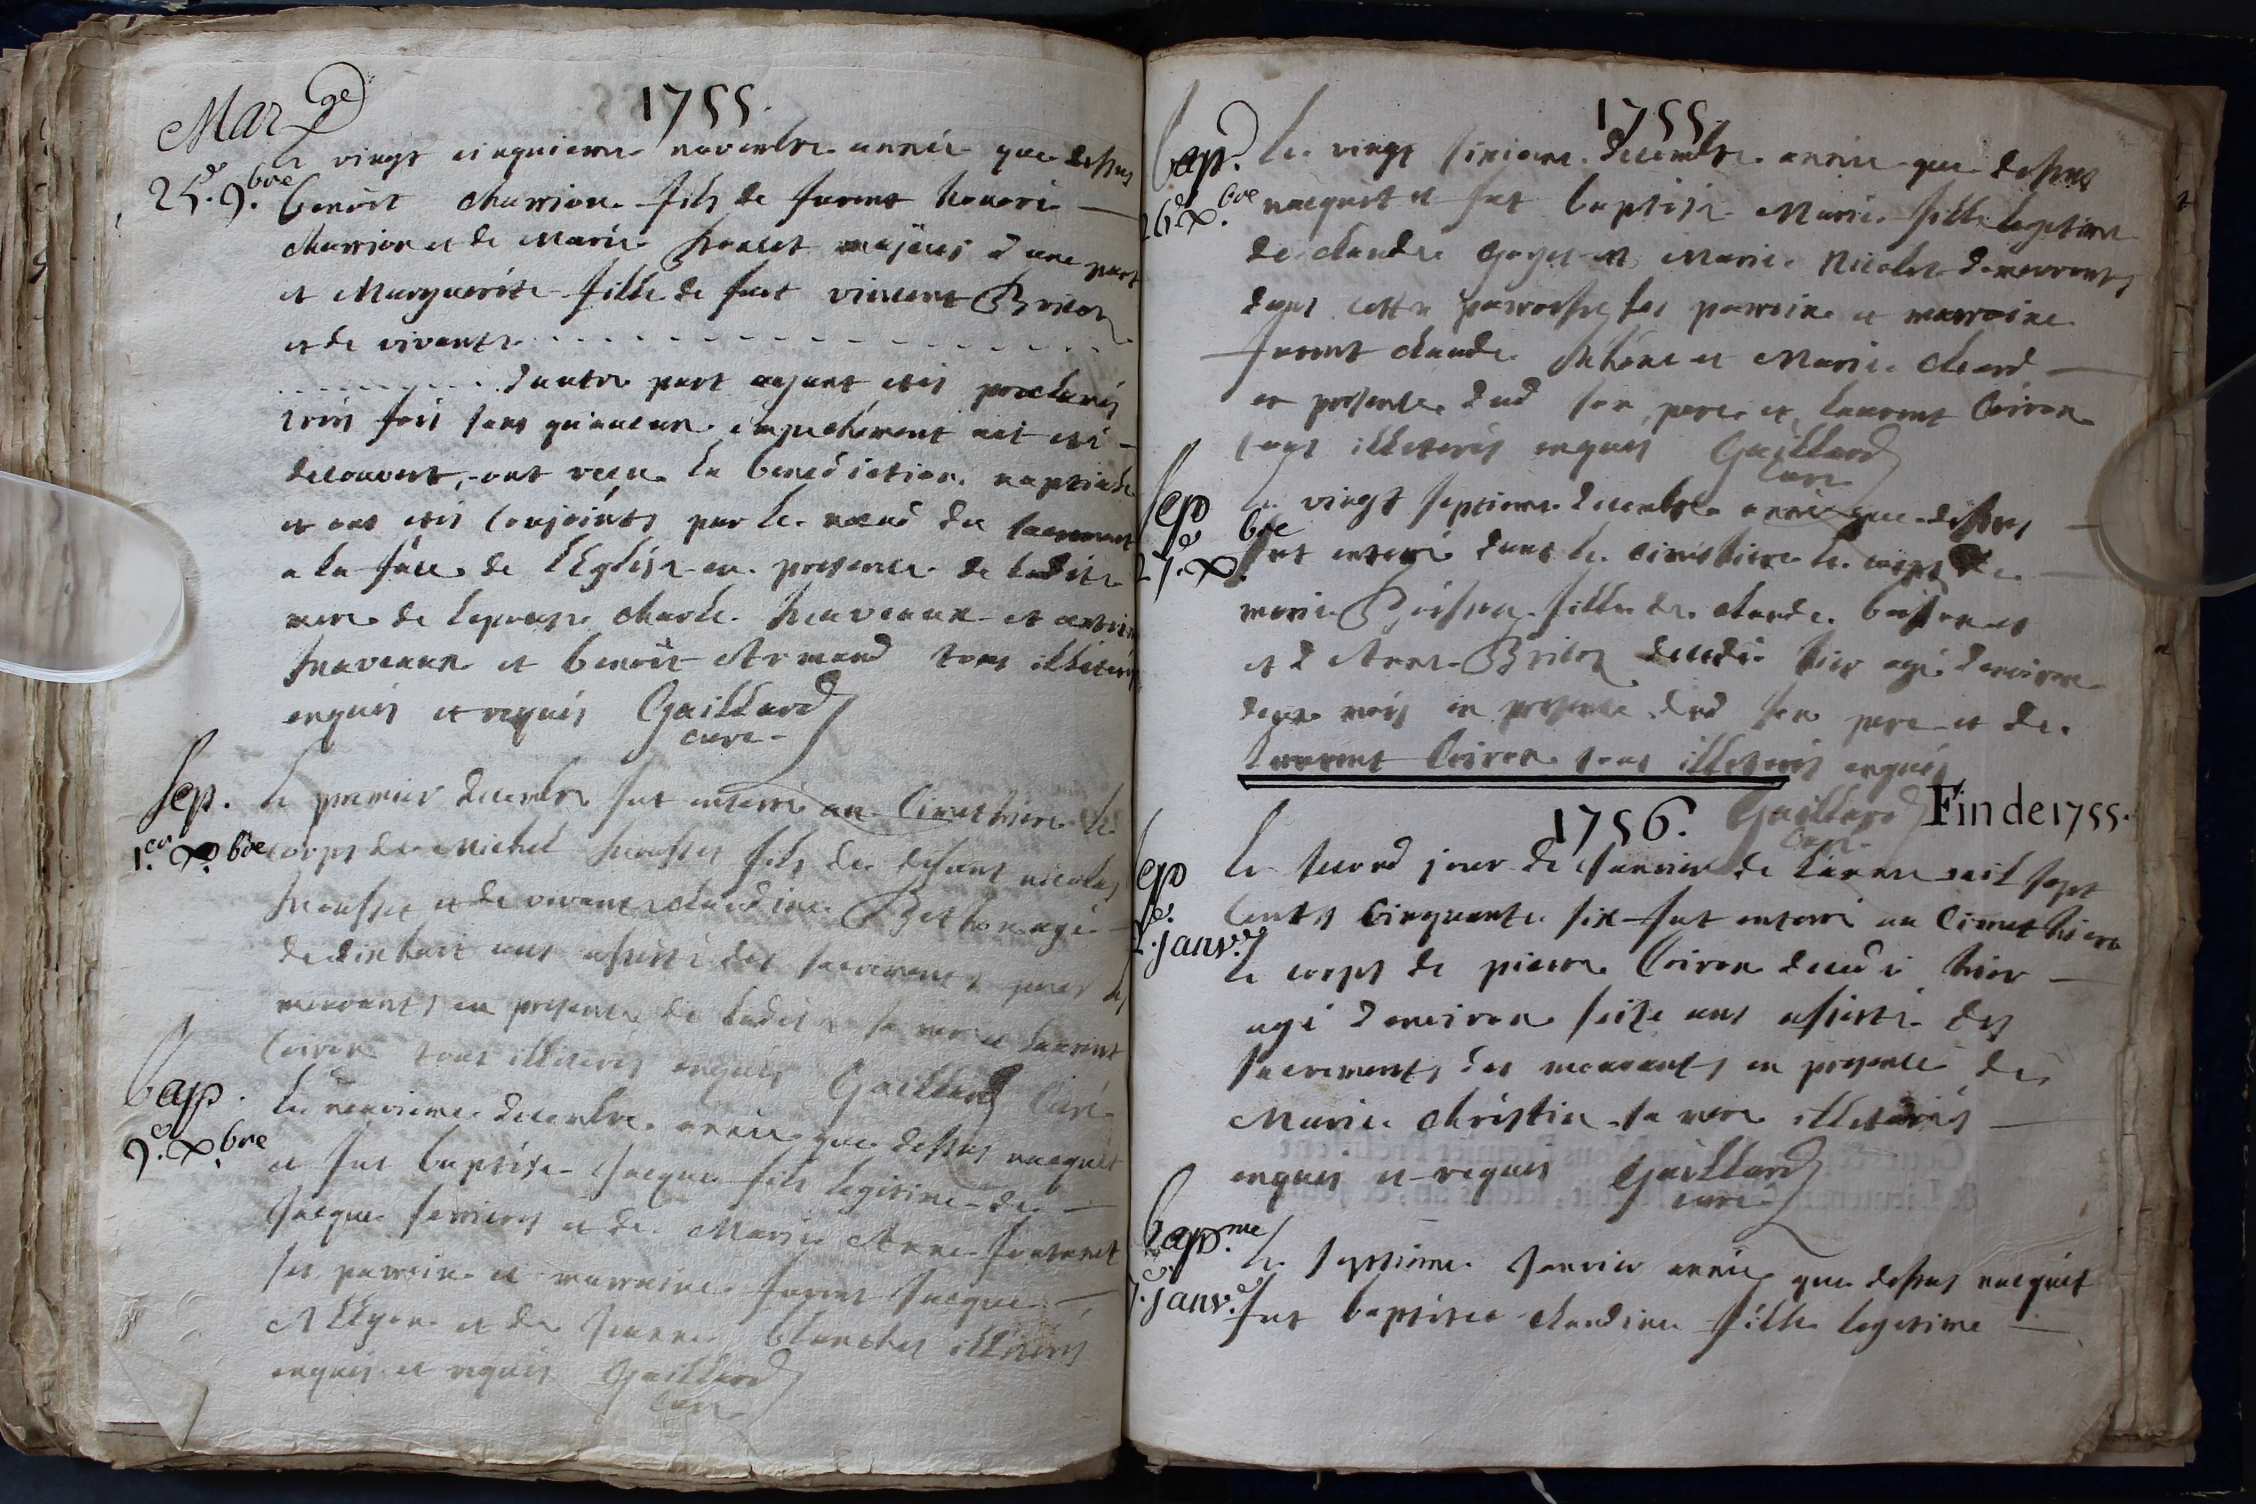 1755.
Mar.ge
25.e 9.bre
le vingt cinquieme novembre année que dessus
benoit charrion fils de furent honoré
charrion et de marie majeur d'une part
et Marguerite fille de feu vincent Brivon
et de vivante
d'autre part ayant etés proclamés
trois fois sans qu'aucun empechement ait été
decouvert, ont recu la benediction nuptiale
et ont etés conjoints par le nœud du sacrement
a la face de l'Eglise en presence de ladite
mere de lepouse charle et antoine
et benoit Armand tous illiterés
enquis et requis Gaillard
curé
Sep.
1.er X.bre
le premier decembre fut enterré au Cimethiere le
corps de Michel fils de defunt nicolas
et de vivante claudine agé
de dixhuit ans assisté des sacrements pour les
mourants en presence de ladite sa mere et laurent
Coiron tous illiterés enquis Gaillard Curé
bap.
9.e X.bre
le neuvieme decembre année que dessus nacquit
et fut baptisé Jacque fils legitime de
Jacque et de Marie Anne
ses parrain et marraine furent Jacque
et de Jeanne blanchet illiterés
enquis et requis Gaillard
Curé
1755.
bap.
26.e X.bre
le vingt sixieme decembre année que dessus
nacquit et fut baptisé Marie fille legitime
de claude goyet et Marie Nicolet demeurants
dans cette parroisse ses parrain et marraine
furent claude et Marie
en presence dud son pere et laurent Coiron
tous illiterés enquis Gaillard
Curé
Sep
27.e X.bre
le vingt septieme decembre année que dessus
fut enterré dans le cimethiere le corps de
marie fille de claude
et d'Anne Brivon decedé hier agé d'environ
deux mois en presence dud son pere et de
Laurent Coiron tous illiterés enquis
Gaillard
Curé
Fin de 1755.
1756.
Sep
2.e janv.er
le second jour de Janvier de l'année mil sept
cents cinquante six fut enterré au Cimethiere
le corps de pierre Coiron decedé hier
agé d'environ seize ans assisté des
sacrements des mourants en presence de
Marie christin sa mere illiterés
enquis et requis Gaillard
curé
bap.me
7.e janv.er
le septieme Janvier année que dessus nacquit
fut baptisée claudine fille legitime